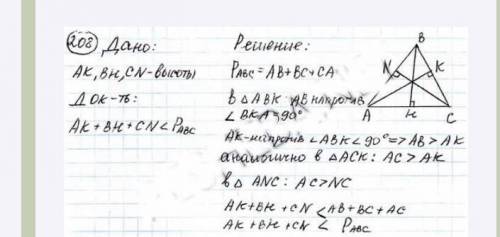 208 Дано:
АК, ВН, CN-высоты
Док-ть:
АК+ВН+CN<P_ABC
Решение:
P_ABC=AB+BC+CA
в △ABK AB напротив
∠BKA=90°
АК-напротив ∠ABK<90°=>AB>AK
аналогично в △ACK: AC>AK
в △ ANC: AC>NC
AK+BH+CN<AB+BC+AC
AK+BH+CN< P_ABC
B
N
K
A
H
C